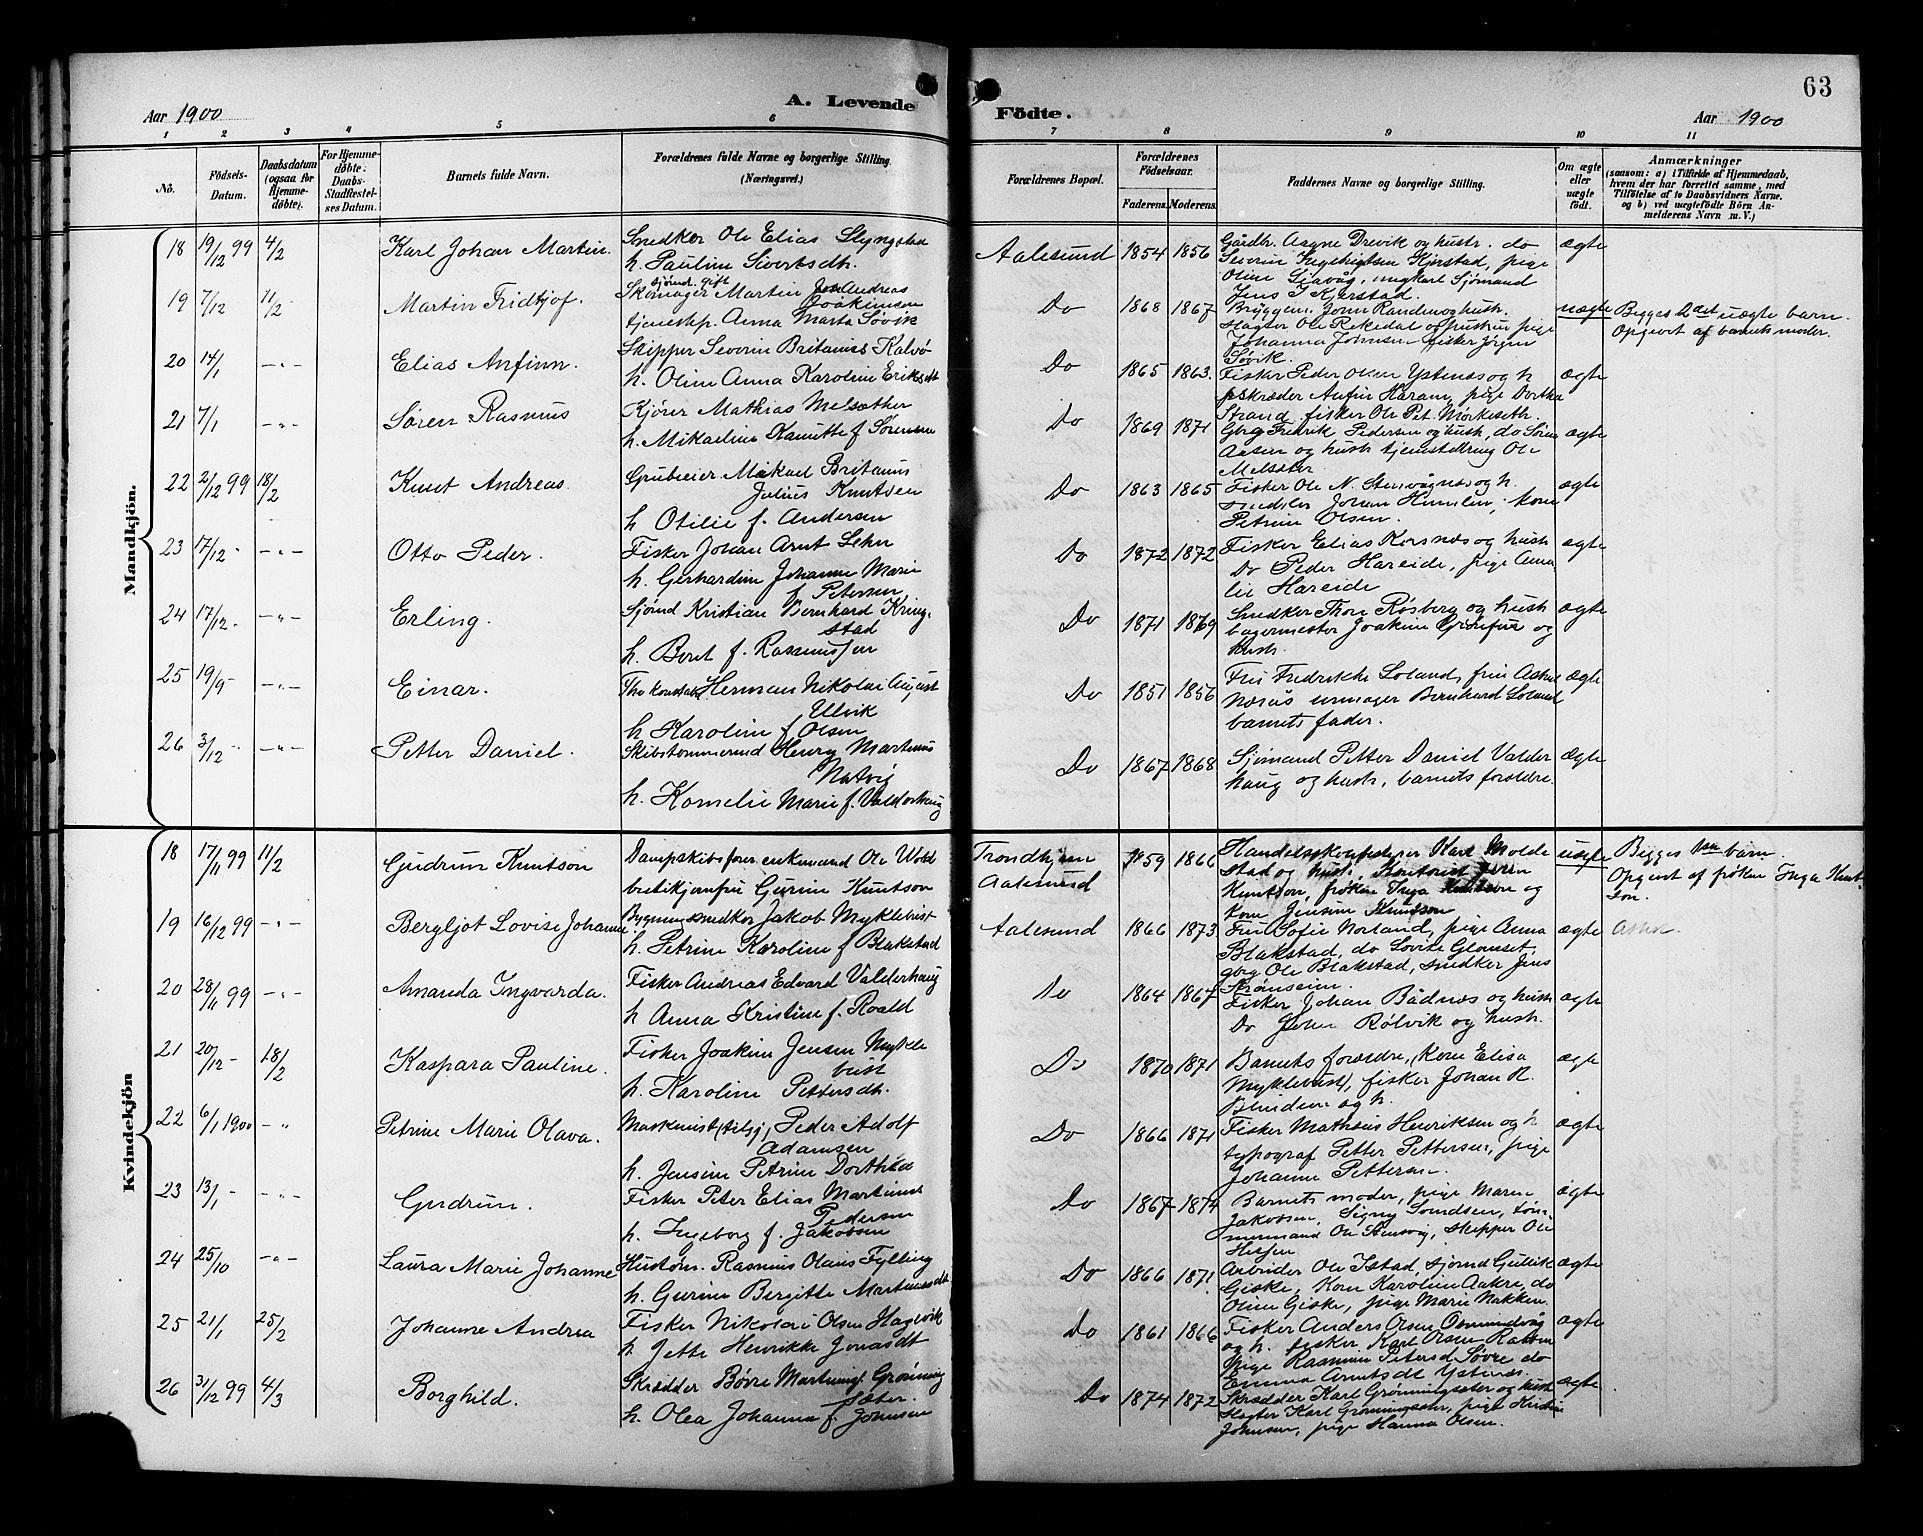 63
Aar 1900
A. Levende
Födte.
Aar 1900
1 2 3 4 5 6 7 8 9 10 11
No.
Födsels-
Datum.
Daabsdatum
(ogsaa for
Hjemme-
döbte).
For Hjemme-
döbte:
Daabs-
Stadfæstel-
ses Datum.
Barnets fulde Navn.
Forældrenes fulde Navne og borgerlige Stilling.
(Næringsvei.)
Forældrenes Bopæl.
Forældrenes
Födselsaar.
Faderens. Moderens.
Faddernes Navne og borgerlige Stilling.
Om ægte
eller
uægte
födt.
Anmærkninger
(saasom: a) i Tilfælde af Hjemmedaab,
hvem der har forrettet samme, med
Tilföielse af to Daabsvidners Navne.
og b) ved uægtefödte Börn An-
melderens Navn m. V.)
Mandkjön.
18 19/12 99 4/2 Karl Johan Martin. Snedker Ole Elias Slyngstad
h. Pauline Sivertsdh.
Aalesund 1854 1856 Gårdbr. Aagne Drevik og hustr. do
Severin Ingebrigtsen Kjerstad, pige
Oline Sørvåg, ungkarl Sjømand
Jens I Kjerstad. ægte
19 7/12 11/2 Martin Fridtjof. sjømd. gift
Skomager Martin Jon Andreas
Joakimsen
tjenestep. Anna Marta Søvik
Do 1868 1867 Bryggem. John Randen og hustr.
slagter Ole Rekedal og hustru pige
Johanna Johnsen fisker Jørgen
Søvik. uægte Begges 2det uægte barn.
Opgivet af barnets moder.
20 14/1 -"- Elias Anfinn. Skipper Severin Britanius Kalvø
h. Oline Anna Karoline Eriksdt
Do 1865 1863. Fisker Peder Olsen Ystenæs og h
skræder Anfin Haram, pige Dortha
Strand fisker Ole Pet. Mørkeseth. ægte
21 7/1 -"- Søren Rasmus Kjører Mathias Melsæther
h. Mikaeline Kanutte f. Sørensen
Do 1869 1871 Gbrg Fredrik Pedersen og hustr, do Søren
Aasen og hustr tjenestedreng Ole
Melsæter ægte
22 2/12 99 18/2 Knut Andreas. Grubeeier Mikael Britanus
Julius Knutsen
h Otilie f. Andersen
Do 1863 1865 Fisker Ole N. Stensvågnes og h.
Johan Humlen, kone
Petrine Olsen. ægte
23 17/12 -"- Otto Peder. Fisker Johan Arnt Lehn
h. Gerhardine Johanne Marie
f. Petersen
Do 1872 1872 Fisker Elias Kersnæs og hustr
Do Peder Hareide, pige Anna
lie Hareide ægte
24 17/12 -"- Erling. Sjømd Kristian Bernhard Kring-
stad
h. Berit f. Rasmussen
Do 1871 1869 Snedker Thore Røsberg og hustr
bagermester Joakim og
hustr. ægte
25 19/9 -"- Einar. Herman Nikolai August
Ulvik
h Karoline f. Olsen
Do 1851 1856 Fru Fredrikke Loland, frøu
urmager Bernhard Loland
barnets fader. ægte
26 3/12 -"- Petter Daniel. Skibstømmermd Henry Martinus
Natvig
h. Kornelie Marie f. Valderhaug
Do 1867 1868 Sjømand Petter Daniel Valder
haug og hustr, barnets forældre. ægte
Kvindekjön
18 17/11 99 11/2 Gudrun Knutson Dampskibsfører enkemand Ole Wold
Gurine Knutson
Trondhjem
Aalesund 1859 1866 Karl Molde
stad og hustr. Kontorist
Knutson, frøken Inga Knutson og
kone Jensine Knutson uægte Begges 1ste barn
Opgivet af frøken Inga Knut-
son.
19 16/12 99 -"- Bergljot Lovise Johanne Bygningssnedker Jakob Myklebust
h. Petrine Karoline f Blakstad
Aalesund 1866 1873 Fru Sofie Norland, pige Anna
Blakstad, do Lovise Glomset
gbrg Ole Blakstad, snedker Jens
Strømsem. ægte
20 28/11 99 -"- Amanda Ingvarda. Fisker Andreas Edvard Valderhaug
h Anna Kristine f. Roald
Do 1864 1867 Fisker Johan Bådnæs og hustr
Do Johan Rølvik og hustr. ægte
21 20/12 - 18/2 Kaspara Pauline. Fisker Joakim Jensen Mykle
bust
h. Karoline Pettersdt.
Do 1870 1871 Barnets forældre, (Kone Elisa
Myklebust), fisker Johan R.
Blindem og h. ægte
22 6/1 1900 -"- Petrine Marie Olava. Maskinist Peder Adolf
Adamsen
h. Jensine Petrine Dorthea
Do 1866 1871 Fisker Mathæus Henriksen og h
typograf Petter Pettersen, pige
Johanne Pettersen. ægte
23 13/1 - -"- Gudrun. Fisker Peter Elias Martinus
Pedersen
h. Ingeborg f. Jakobsen
Do 1867 1874 Barnets moder, pige Maren
Jakobsen, Signy Tøm-
mermand Ole Stensvig, skipper Ole
Hessen ægte
24 25/10 -"- Laura Marie Johanne Hustøm. Rasmus Olaus Fylling
h. Gurine Bergitte Martinusdt
Do 1866 1871. Arbeider Ole Istad sjømd Gullik
Giske, Kone Karoline Aakre, do
Oline Giske, pige Marie Nakken. ægte
25 21/1 25/2 Johanne Andrea Fisker Nikolai Olsen Hagevik
h Jette Henrikke Jonasdt
Do 1861 1866 Fisker Anders Olsen Osmundvåg
og h. fisker Karl Olsen
pige Rasmine Petersd Søvre do
Emma Arntsdt Ystenæs. ægte
26 3/12 99 4/3 Borghild. Skrædder Børre Martinus Grønning
sæter.
h. Olea Johanna f. Johnsen
Do 1874 1872 Skrædder Karl Grønningsæter og hustr
slagter Karl Grønningsæter, pige Kristine
Johnsen, pige Hanna Olsen. ægte